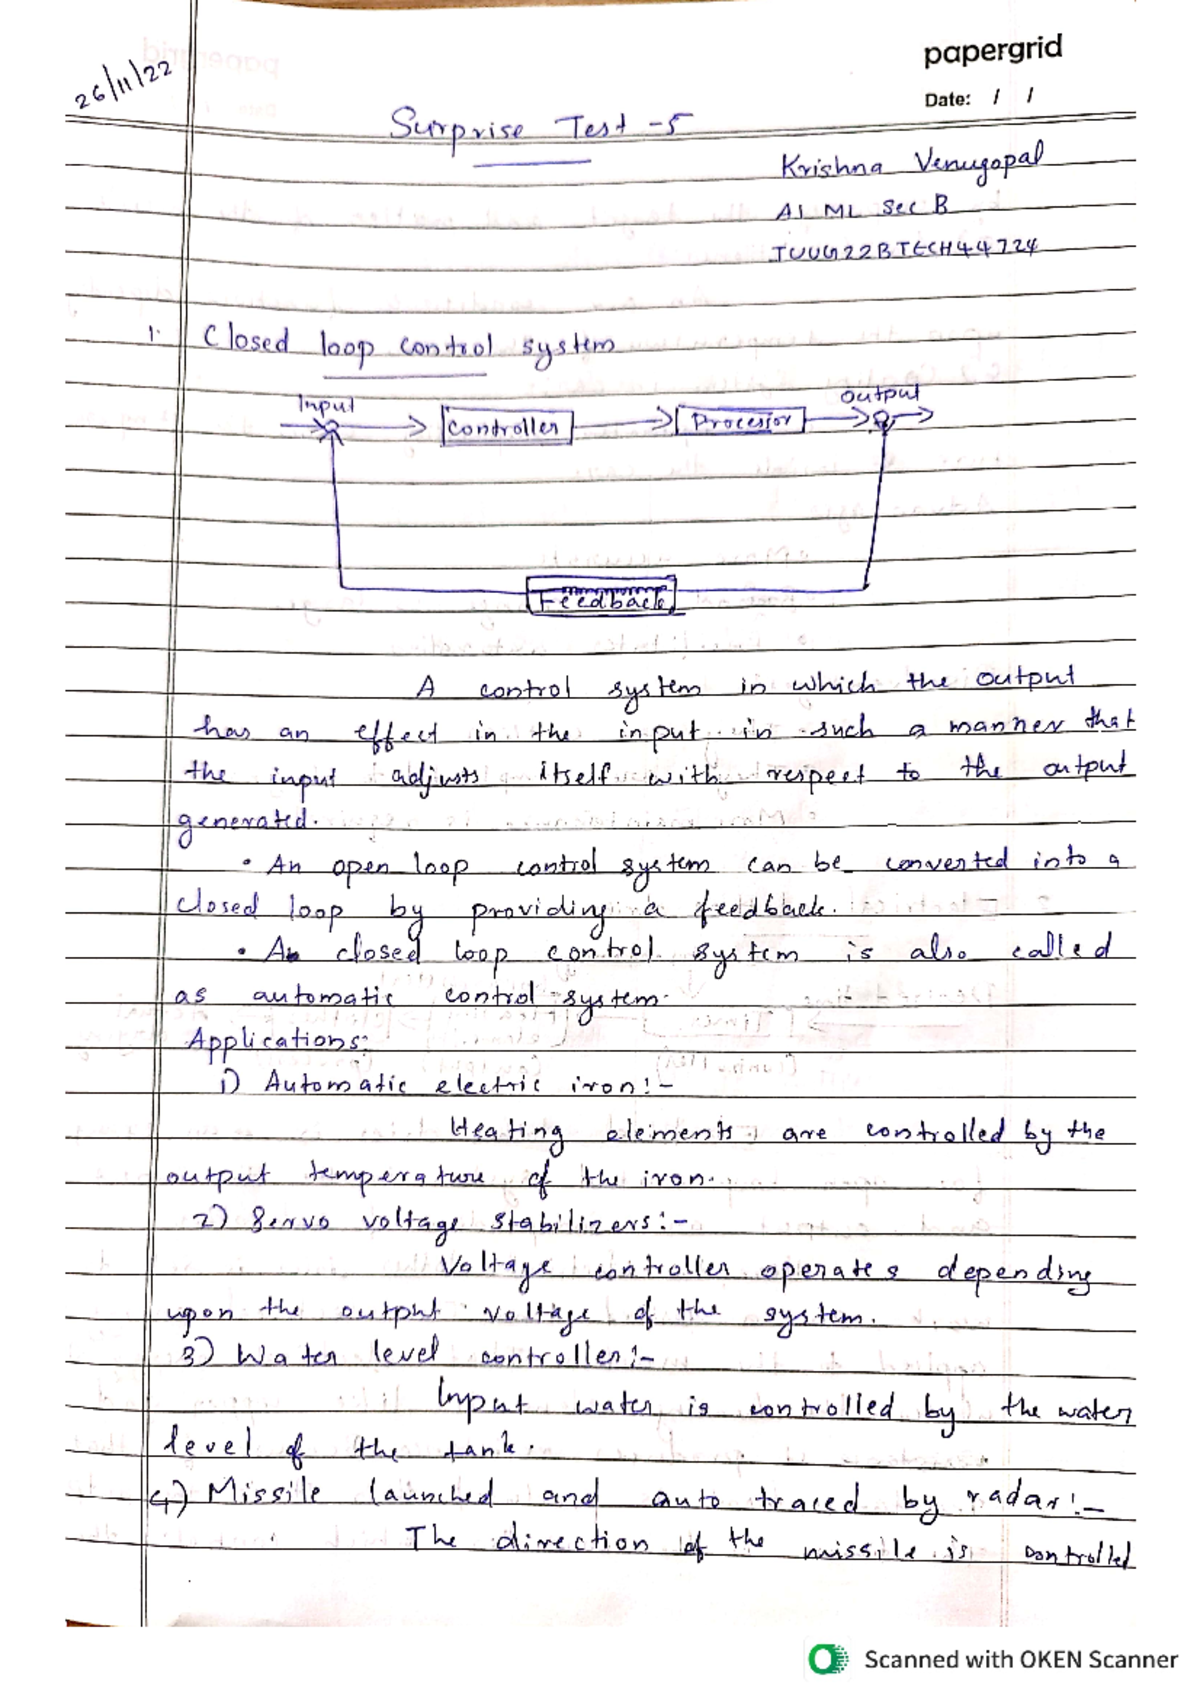 papergrid
26/11/22
Date: / /
Surprise Test -5
Krishna Venugopal
AI ML Sec B
JUUG22BTECH44724
1. Closed loop control system
Input
Output
Controller
Processor
Feedback
A control system in which the output
has an effect in the input in such a manner that
the input adjusts itself with respect to the output
generated.
• An open loop control system can be converted into a
closed loop by providing a feedback.
• A closed loop control system is also called
as automatic control system.
Applications:
1) Automatic electric iron:-
Heating elements are controlled by the
output temperature of the iron.
2) Servo voltage stabilizers:-
Voltage controller operates depending
upon the output voltage of the system.
3) Water level controller:-
Input water is controlled by the water
level of the tank.
4) Missile launched and auto traced by radar:-
The direction of the missile is controlled
Scanned with OKEN Scanner